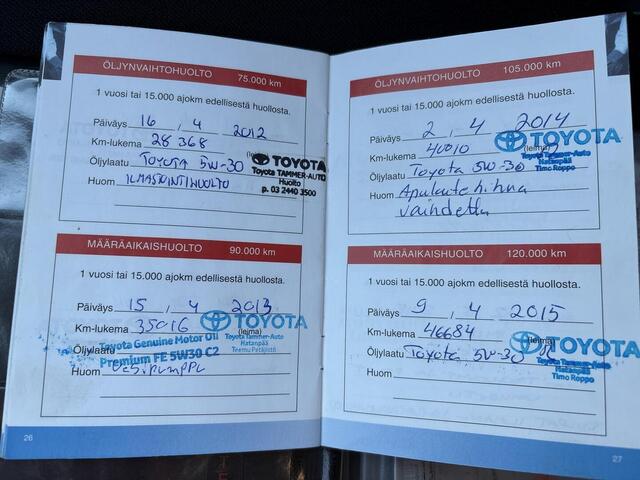 ÖLJYNVAIHTOHUOLTO 75.000 km
1 vuosi tai 15.000 ajokm edellisestä huollosta.
Päiväys 16 . 4 2012
Km-lukema 28 368 (leima)
Öljylaatu TOYOTA 5W-30
Huom ILMASTOINTIHUOLTO
TOYOTA
Toyota TAMMER-AUTO
Huolto
p. 03 2440 3500
MÄÄRÄAIKAISHUOLTO 90.000 km
1 vuosi tai 15.000 ajokm edellisestä huollosta.
Päiväys 15 . 4 2013
Km-lukema 35016 (leima)
Öljylaatu
Toyota Genuine Motor Oil
Premium FE 5W30 C2
Huom
TOYOTA
Toyota Tammer-Auto
Hatanpää
Teemu Petäjistö
26
ÖLJYNVAIHTOHUOLTO 105.000 km
1 vuosi tai 15.000 ajokm edellisestä huollosta.
Päiväys 2 . 4 2014
Km-lukema 40010 (leima)
Öljylaatu Toyota 5W-30
Huom Apulaitehihna
vaihdettu
TOYOTA
Toyota Tammer-Auto
Hatanpää
Timo Reppo
MÄÄRÄAIKAISHUOLTO 120.000 km
1 vuosi tai 15.000 ajokm edellisestä huollosta.
Päiväys 9 . 4 2015
Km-lukema 46684 (leima)
Öljylaatu Toyota 5W-30
Huom
TOYOTA
Toyota Tammer-Auto
Hatanpää
Timo Reppo
27